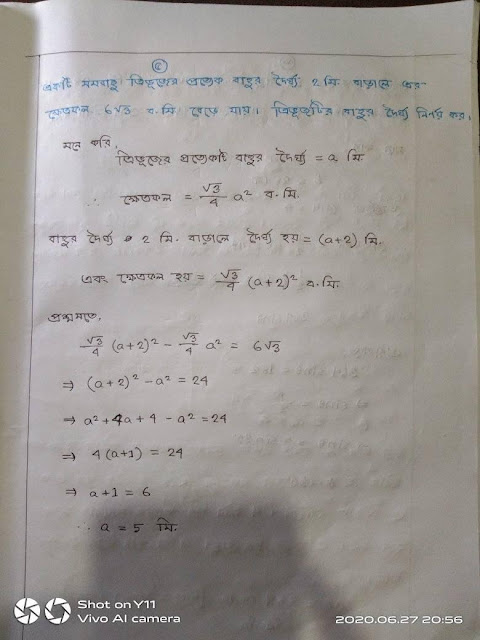 ৫
একটি সমবাহু ত্রিভুজের প্রত্যেক বাহুর দৈর্ঘ্য 2 মি. বাড়ালে এর
ক্ষেত্রফল 6√3 ব.মি বেড়ে যায়। ত্রিভুজটির বাহুর দৈর্ঘ্য নির্ণয় কর।
মনে করি,
ত্রিভুজের প্রত্যেকটি বাহুর দৈর্ঘ্য = a মি
∴ ক্ষেত্রফল = √3/4 a² ব.মি.
বাহুর দৈর্ঘ্য 2 মি. বাড়ালে দৈর্ঘ্য হয় = (a+2) মি.
এবং ক্ষেত্রফল হয় = √3/4 (a+2)² ব.মি.
প্রশ্নমতে,
√3/4 (a+2)² - √3/4 a² = 6√3
⇒ (a+2)² - a² = 24
⇒ a² + 4a + 4 - a² = 24
⇒ 4(a+1) = 24
⇒ a+1 = 6
∴ a = 5 মি.
Shot on Y11
Vivo AI camera
2020.06.27 20:56